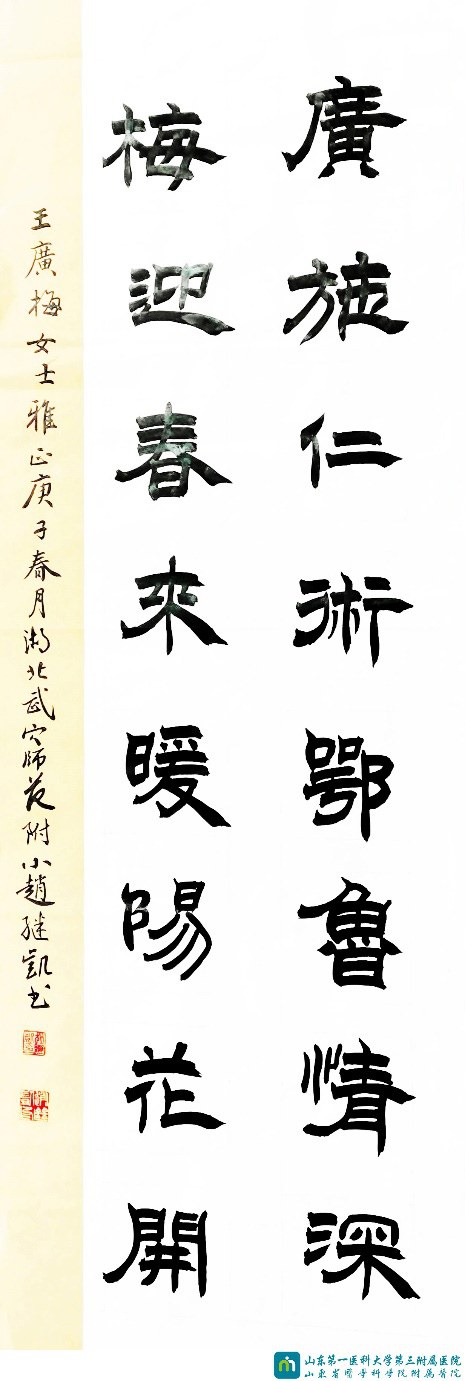 廣施仁術鄂魯情深
梅迎春來暖陽花開
王廣梅女士雅正庚子春月湖北武穴师范附小趙继凯书
山东第一医科大学第三附属医院
山东省医学科学院附属医院